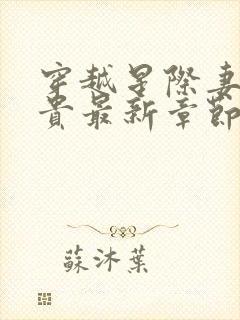 穿越星際妻
貴最新章節
蘇沐葉